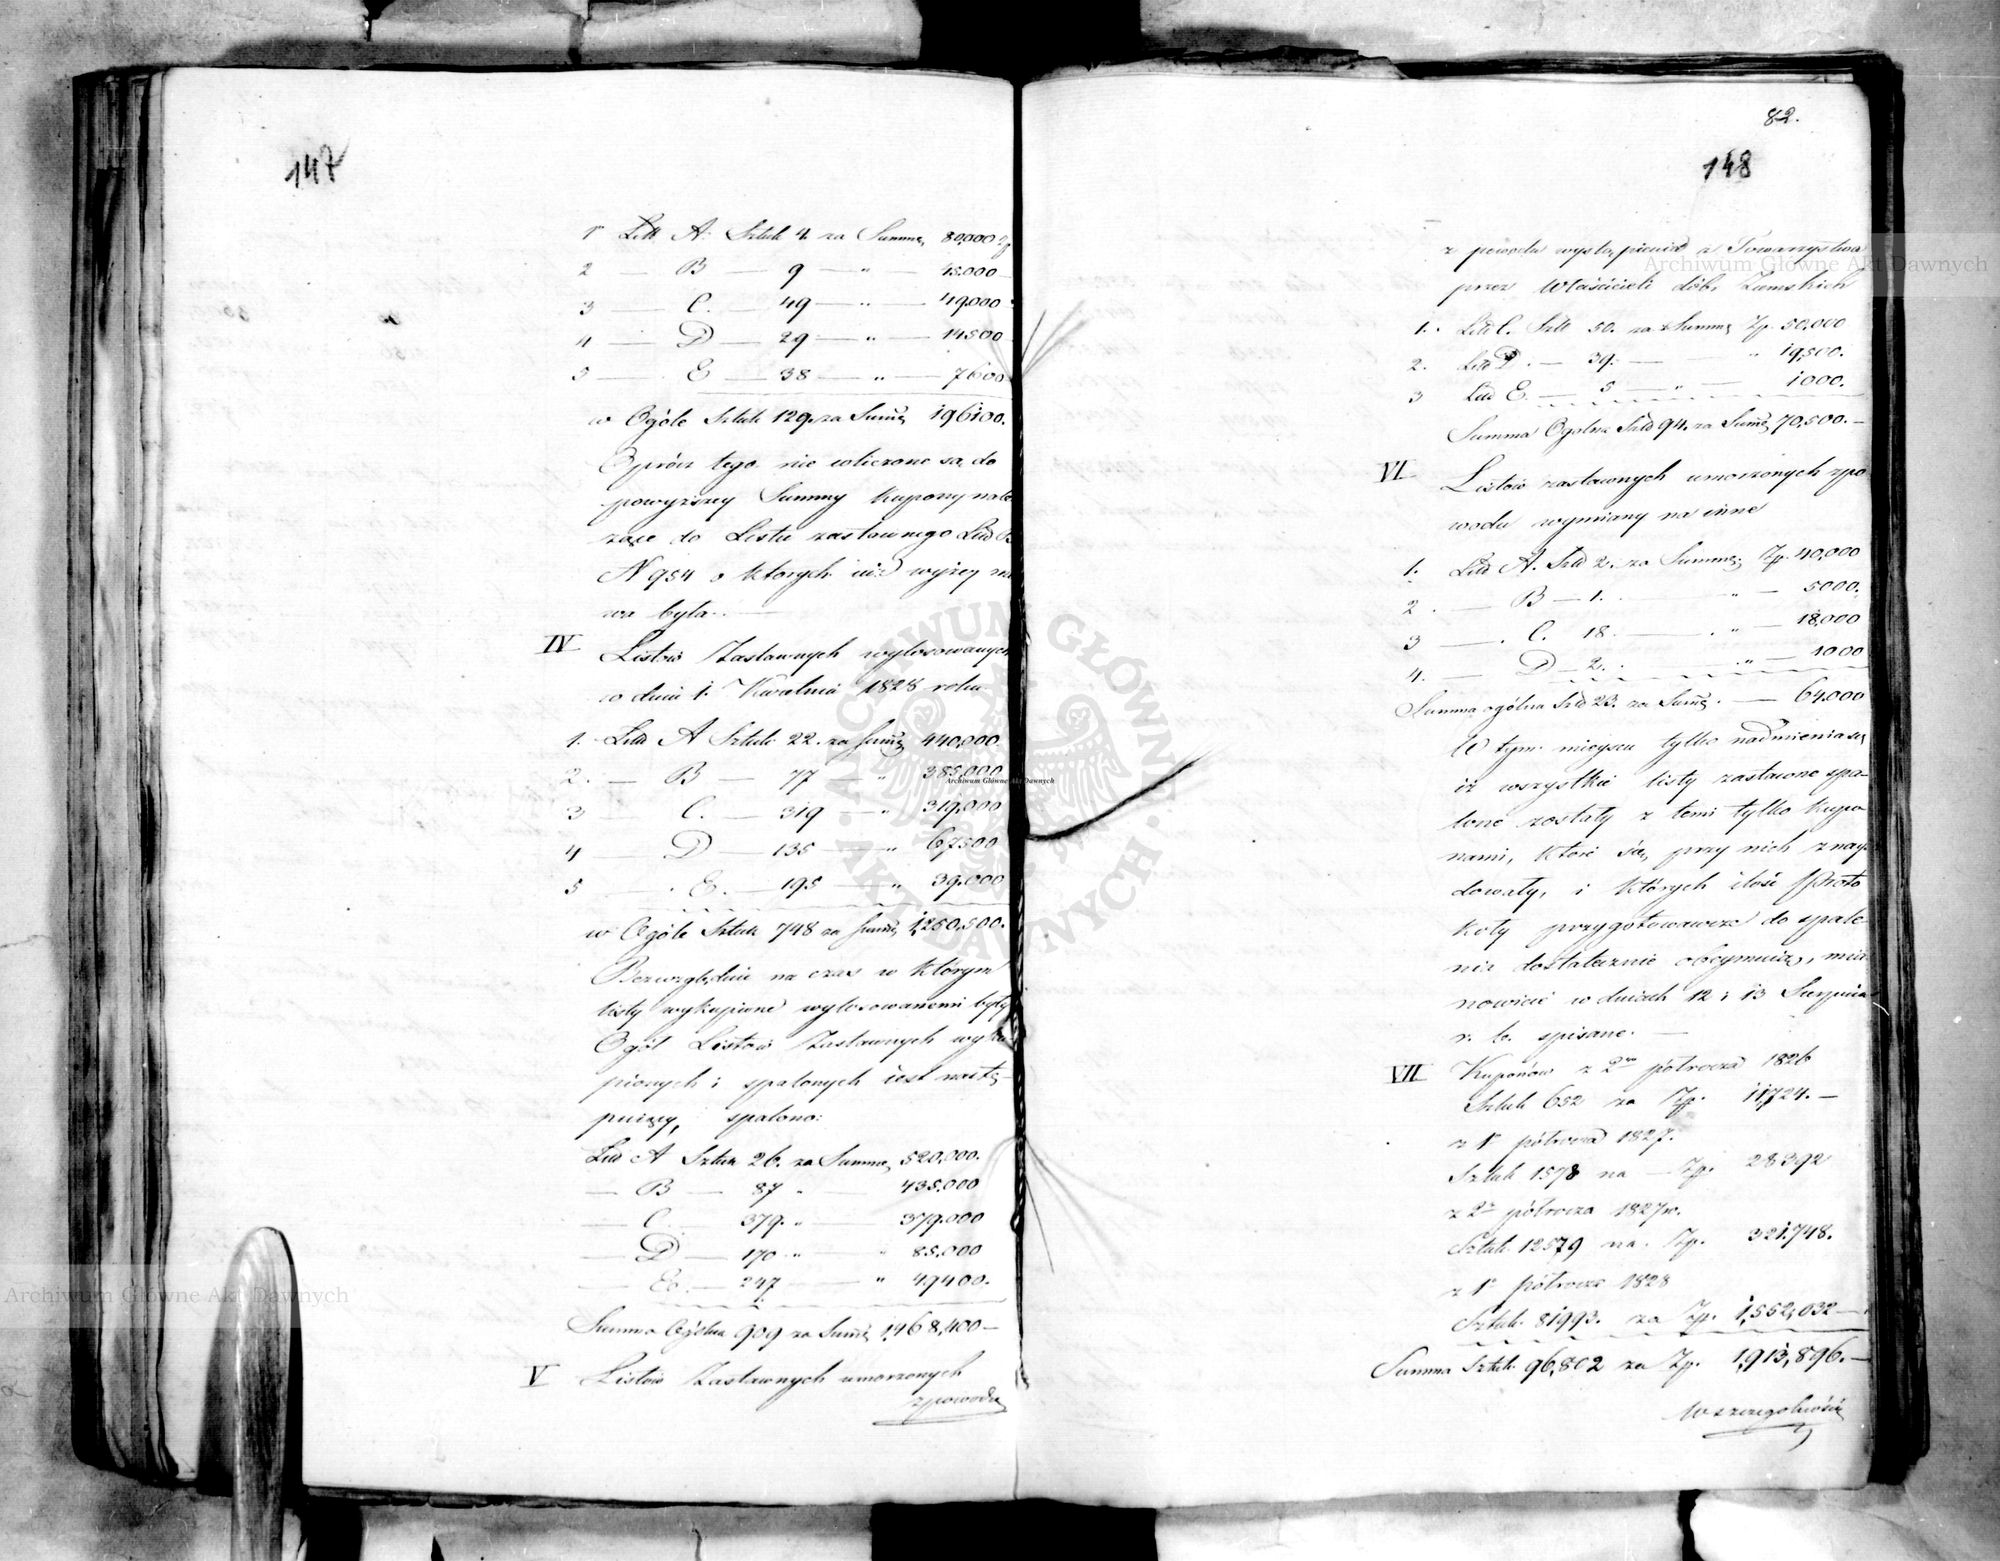 147
1° Litt A: Sztuk 4. za Summę 80,000 Zp
2 — B — 9 — „ — 45.000
3 — C. — 49 — „ — 49,000
4 — D — 29 — „ — 14500
5 — E — 38 — „ — 7600
w Ogóle Sztuk 129 za Summę 196100.
Oprócz tego nie wliczone są do
powyższey Summy Kupony nale
żące do Listu zastawnego Litt B
N 954 o których iuż wyżey mo
wa była. —
IV Listów Zastawnych wylosowanych
w dniu 1. Kwietnia 1828 roku
1. Litt A Sztuk 22. za Summę 440,000.
2. — B — 77 „ 385,000
3 C. — 319 — „ 319,000
4 — D — 135 — „ 67500
5 — E. — 195 — „ 39.000
w Ogóle Sztuk 748 za Summę 1,250,500.
Bezwzględnie na czas w którym
listy wykupione wylosowanemi były
Ogół Listów Zastawnych wyku-
pionych i spalonych iest nastę-
puiący, spalono:
Litt A Sztuk 26. za Summę 520,000.
— B — 87 „ 435.000
— C — 379. „ 379.000
— D — 170 „ „ 85.000
— E. — 247 — „ 49400.
Summa Ogólna 909 za Summę 1,468,400 —
V Listów Zastawnych umorzonych
z powodu
82.
148
z powodu wystąpienia z Towarzystwa
przez Właścicieli dóbr Ziemskich
1. Litt C. Sztk 50. za Summę Zp. 50,000
2. Litt D. — 39. — „ 19,500.
3 Litt E. — 5 — „ — 1000.
Summa Ogolna Sztk 94. za Summę 70,500. —
VI Listów zastawnych umorzonych zpo
wodu wymiany na inne
1. Litt A. Sztk 2. za Summę Zp. 40,000
2. — B — 1. „ — 5000.
3 — C. 18. — „ — 18,000
4. — D — 2. . „ — 1000
Summa ogólna Sztk 23. za Summę. — 64.000
W tym mieyscu tylko nadmienia się
iż wszystkie listy zastawne spa-
lone zostały z temi tylko kupo
nami, które się przy nich znay
dowały, i których ilość Proto
koły przygotowawcze do spale-
nia dostatecznie obeymuią, mia
nowicie w dniach 12 i 13 Sierpnia
r. b. spisane. —
VII Kuponów z 2go półrocza 1826
Sztuk 652 na Zp. 11,724. —
z 1° półrocza 1827.
Sztuk 1578 na — Zp. 28392
z 2° półrocza 1827 r.
Sztuk 12579 na. Zp. 321.748.
z 1° półrocza 1828
Sztuk 81993. za Zp. 1,552,032 —
Summa Sztuk 96,802 za Zp. 1,913,896. —
W szczególności
Archiwum Główne Akt Dawnych
Archiwum Główne Akt Dawnych
Archiwum Główne Akt Dawnych
ARCHIWUM GŁÓWNE AKT DAWNYCH